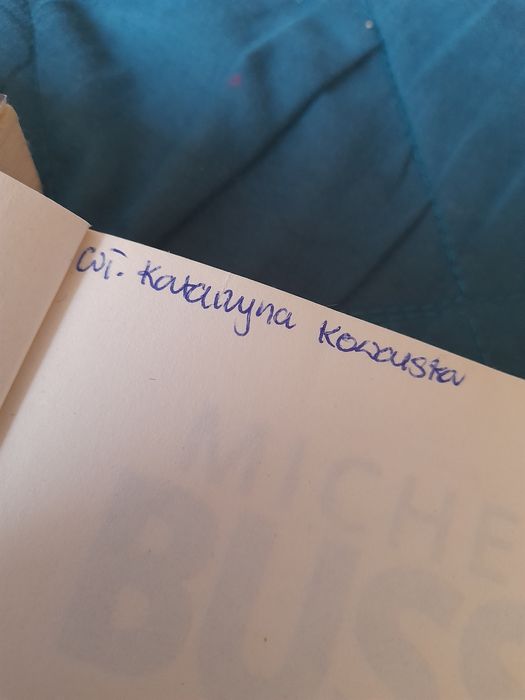 wł. Katarzyna Kowalska
MICHE
BUSS